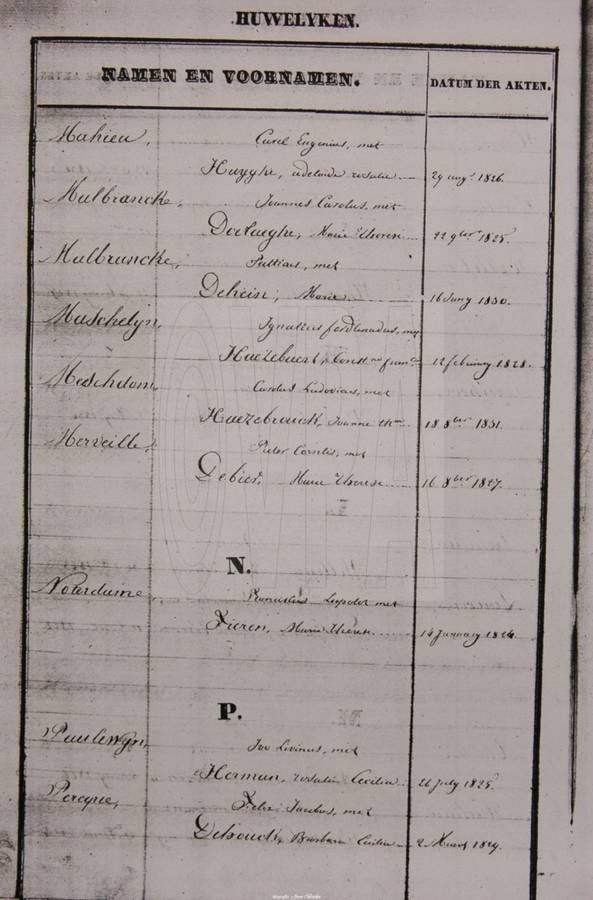 HUWELYKEN.
NAMEN EN VOORNAMEN. DATUM DER AKTEN.
Mahieu, Carel Eugenius, met
Huyghe, adelaide rosalie 29 augt 1826.
Malbrancke, Joannes Carolus, met
Declaeghe, Marie Theren 22 9ber 1825.
Malbrancke, met
Marie 16 Juny 1830.
Maschelyn, Ignatius ferdinandus, met
Haezebaert, 12 february 1828.
Meschdom, Carolus Ludovicus, met
Haezebrouck, Joanne 18 8ber 1831.
Merveille, Pieter met
Debier, Marie Therese 16 8ber 1827.
N.
Noterdame, Franciscus Leopold met
Zieren, Marie Therese 14 January 1826.
P.
Pauleweyn, Ivo Livinus, met
Herman, rosalie Cecilia 26 July 1825.
Percque, Felix Jacobus, met
Barbara Cecilia 2 Maert 1829.